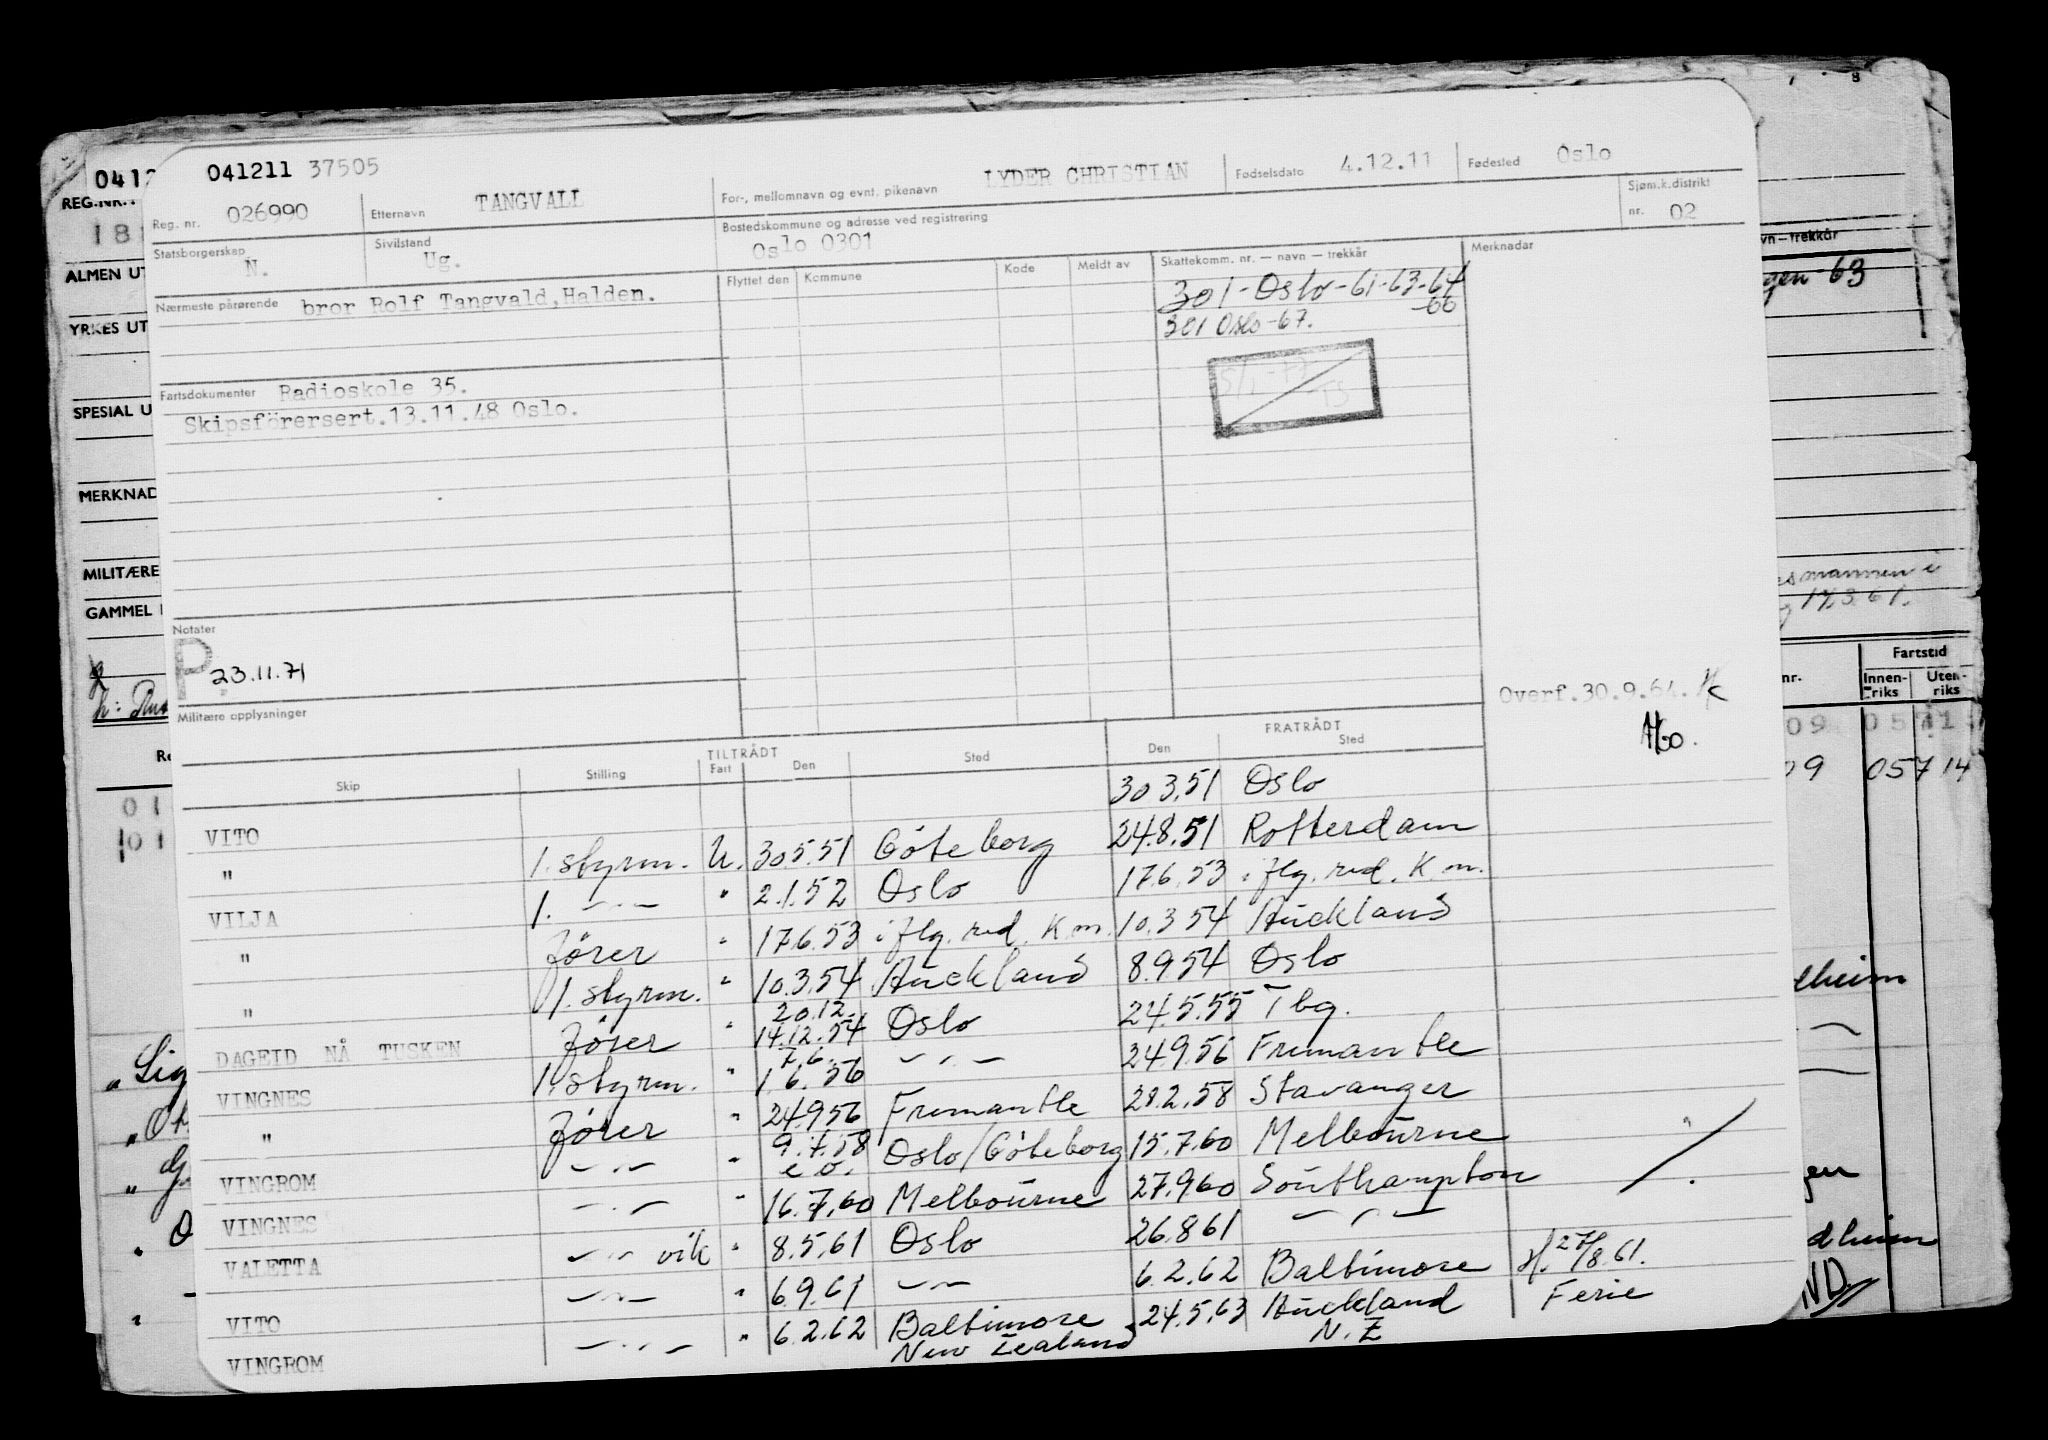 041211 37505
Reg. nr. 026990 Etternavn TANGVALL For-, mellomnavn og evnt. pikenavn LYDER CHRISTIAN Fødselsdato 4.12.11 Fødested Oslo
Statsborgerskap N. Sivilstand Ug. Bostedskommune og adresse ved registrering Oslo 0301 Sjøm.k.distrikt nr. 02
Nærmeste pårørende bror Rolf Tangvald, Halden. Flyttet den Kommune Kode Meldt av Skattekomm. nr. — navn — trekkår Merknadar
301-Oslo-61-63-64
-66
301 Oslo-67.
Fartsdokumenter Radioskole 35.
Skipsförersert.13.11.48 Oslo.
Notater
P 23.11.71
Overf.30.9.64.
Militære opplysninger
TILTRÅDT FRATRÅDT
Skip Stilling Fart Den Sted Den Sted
VITO 30 3.51 Oslo
" 1. styrm. U. 30 5.51 Göteborg 24.8.51 Rotterdam
VILJA 1. —"— " 2.1.52 Oslo 17.6.53 i flg. red. K.m.
" Fører " 17.6.53 i flg. red. K.m. 10.3.54 Auckland
" 1. styrm. " 10.3.54 Auckland 8.9.54 Oslo
20.12.
DAGEID NÅ TUSKEN Fører " 14.12.54 Oslo 24.5.55 Tbg.
VINGNES 1. styrm. " 1 6.56 —"— 24.9.56 Fremantle
" Fører " 24.9.56 Fremantle 28.2.58 Stavanger
VINGROM —"— " 9.7.58 e.o. Oslo/Göteborg 15.7.60 Melbourne
VINGNES —"— " 16.7.60 Melbourne 27.9.60 Southampton
VALETTA —"— vik " 8.5.61 Oslo 26.8.61 —"— 27/8.61.
VITO —"— " 6.9.61 —"— 6.2.62 Baltimore Ferie
VINGROM —"— " 6.2.62 Baltimore 24.5.63 Auckland
New Zealand N.Z
0412
REG.NR.
18
ALMEN UT
YRKES UT
SPESIAL U
MERKNAD
MILITÆRE
GAMMEL
vn—trekkår
gen 63
17.3.61.
Fartstid
nr. Innenriks Utenriks
09 057 1
09 057 14